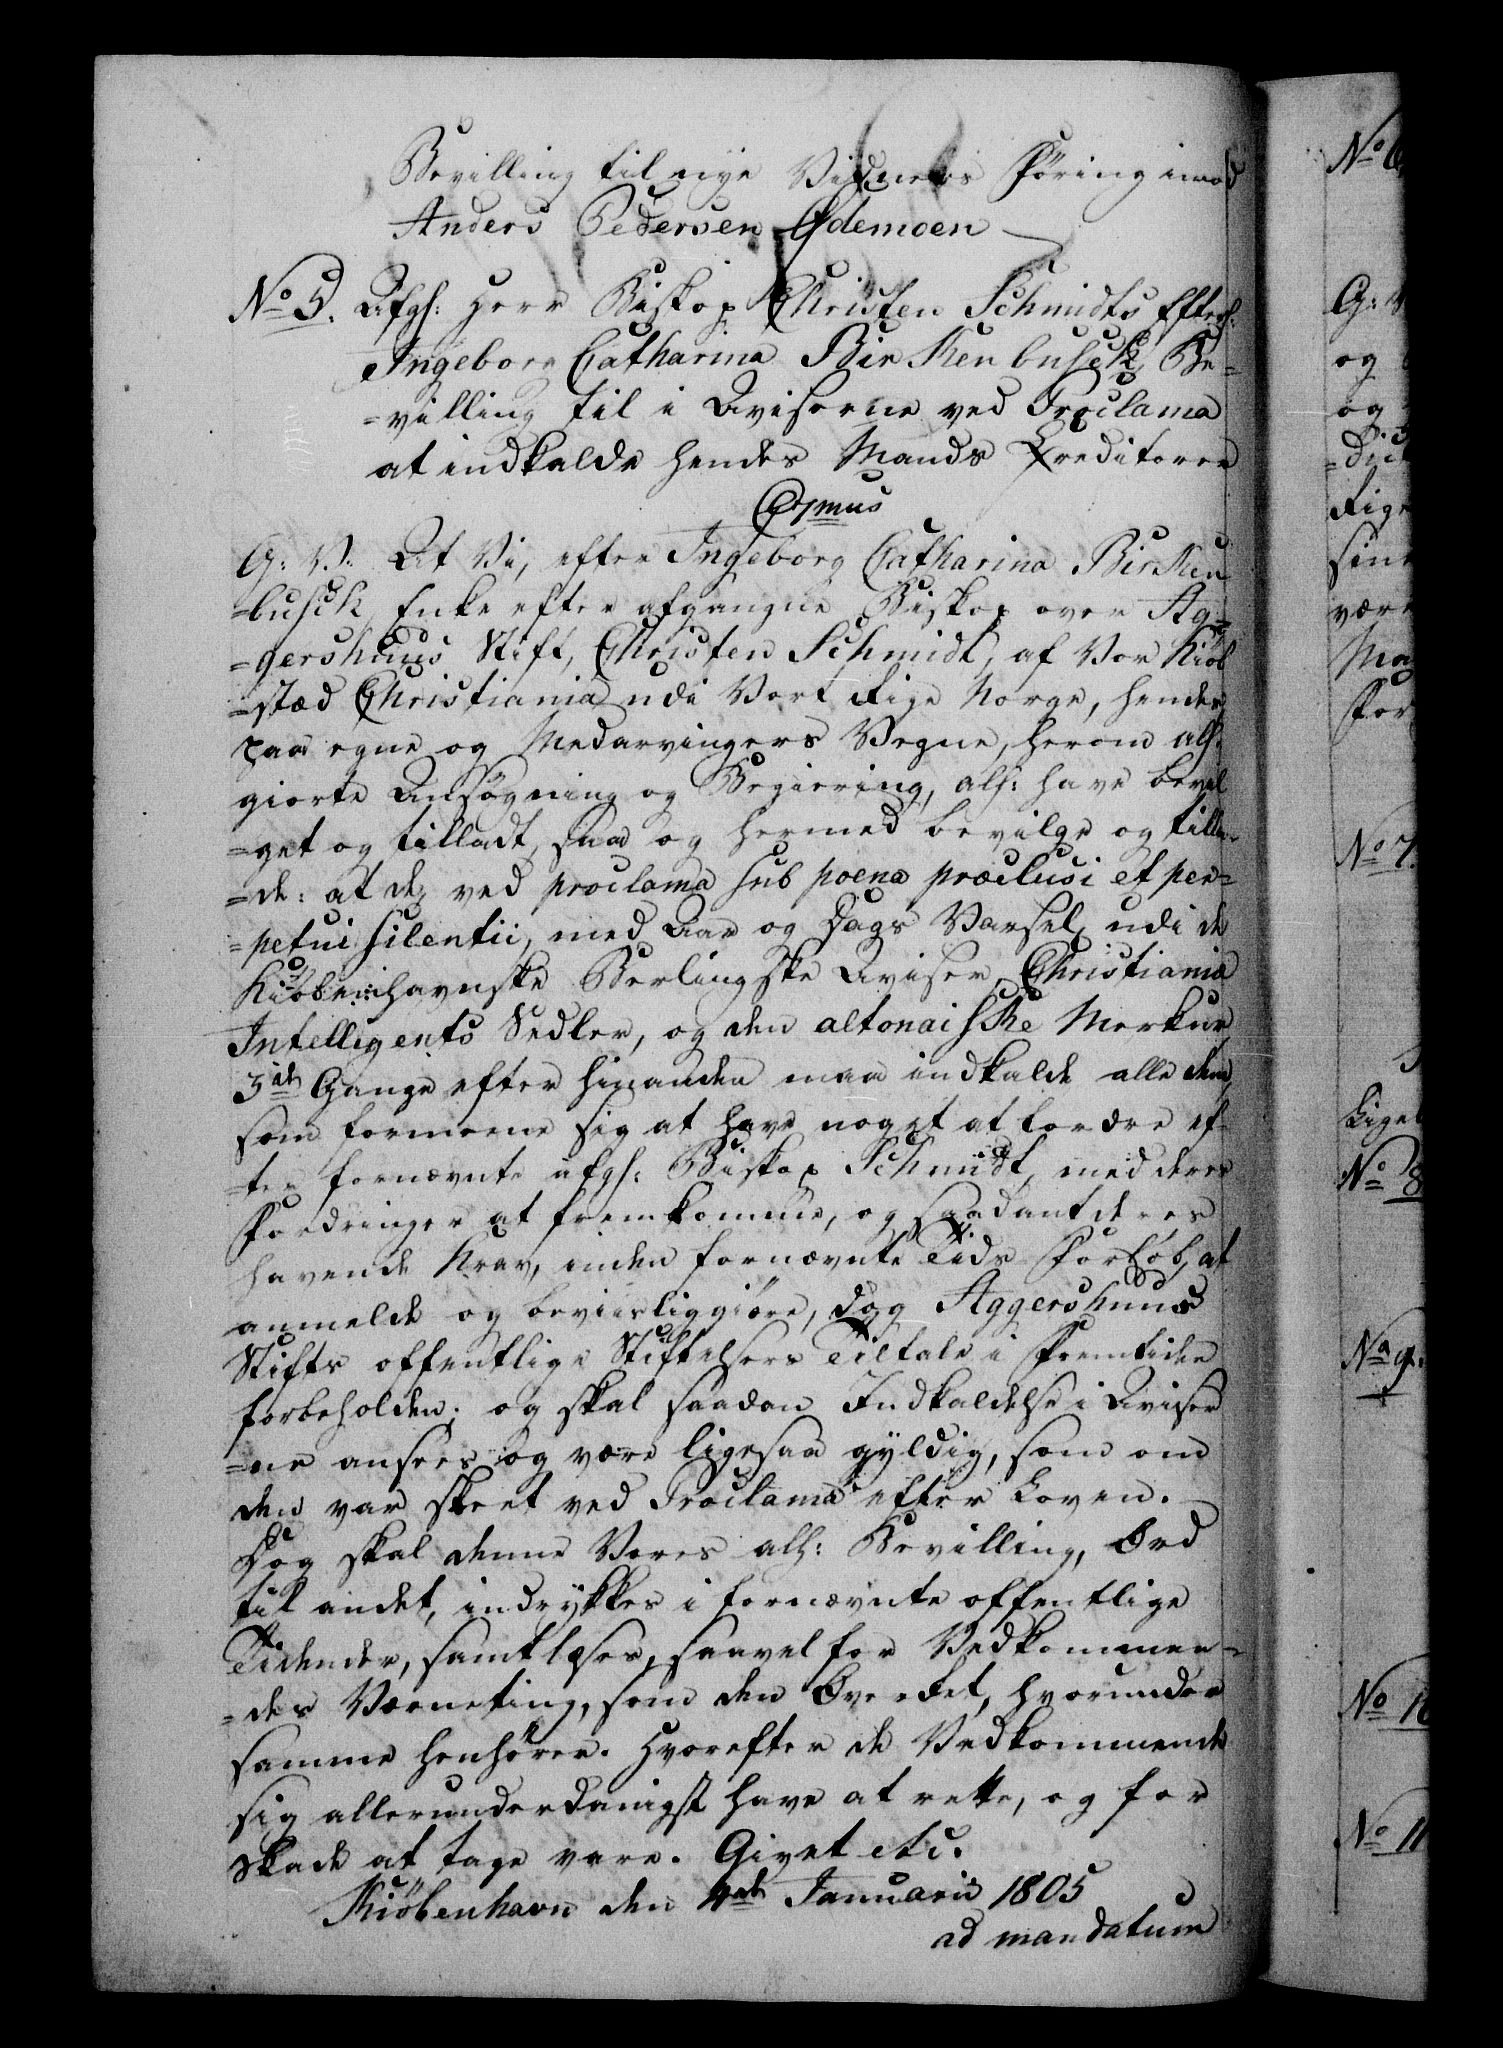 Bevilling til nye Vidners Føring imod
Anders Pedersen Ødemoen
No 5. Afgh: Herr Biskop Christen Schmidts Efterl:
Ingeborg Catharina Birkenbusch, Be-
=villing til i Aviserne ved Proclama
at indkalde hendes Mands Creditorer
C 7mus
G: V: At Vi, efter Ingeborg Catharina Birken
=busch, Enke efter afgangne Biskop over Ag-
=gershuus Stift, Christen Schmidt, af Vor Kiøb
=stæd Christiania udi Vort Rige Norge, hendes
paa egne og Medarvingers Vegne, herom alh:
giorte Ansøgning og Begiering, alh: have bevil
=get og tilladt, saa og hermed bevilge og tilla-
=de: at de, ved proclama sub poena præclusi et per-
=petui silentii, med Aar og Dags Varsel, udi de
Kiøbenhavnske Berlingske Aviser, Christiania
Intelligents Sedler, og den altonaiske Merkur,
3de Gange efter hinanden maa indkalde alle dem,
som formeene sig at have noget at fordre ef-
=ter fornævnte afgh: Biskop Schmidt, med deres
Fordringer at fremkomme, og saadant deres
havende Krav, inden fornævnte Tids Forløb, at
anmelde og beviisliggiøre, dog Aggershuus
Stifts offentlige Stiftelsers Tiltale i Fremtiden
forbeholden; og skal saadan Indkaldelse i Aviser
=ne ansees og være ligesaa gyldig, som om
den var skeet ved Proclama efter Loven.
Dog skal denne Vores alh: Bevilling, Ord
til andet, indrykkes i fornævnte offentlige
Tidender, samt læses, saavel for Vedkommen-
=des Værneting, som den Overret, hvorunder
samme henhører. Hvorefter de Vedkommende
sig allerunderdanigst have at rette, og for
Skade at tage vare. Givet etc.
Kiøbenhavn den 4de Januarii 1805
ad mandatum
No 6
G: V
og
og
=dic
Rige
sine
være
Ma
For
No 7.
Lige
No 8
No 9.
No 10
No 11